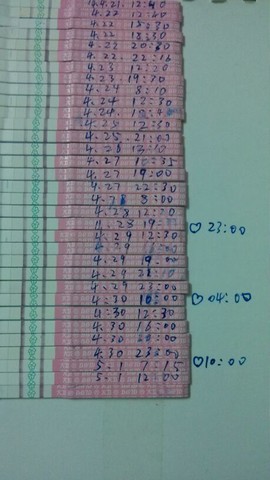 4.21. 12:40
4.22 12:40
4.22 18:30
4.22 18:30
4.22 20:30
4.22. 22:16
4.23 12:20
4.23 19:30
4.24 8:10
4.24 12:30
4.24.
4.25 12:30
4.25. 21:00
4.26 13:10
4.27 10:35
4.27 19:00
4.27 22:30
4.28 8:00
4.28 12:
4.28 19:
♡ 23:00
4.29 12:30
4.29
4.29 19:00
4.29 21:10
4.29 23:00
4.30 10:00
♡ 04:00
4:30 12:30
4.30 16:00
4.30 20:00
4.30 23:00
♡ 10:00
5.1 7:15
5.1 12:00